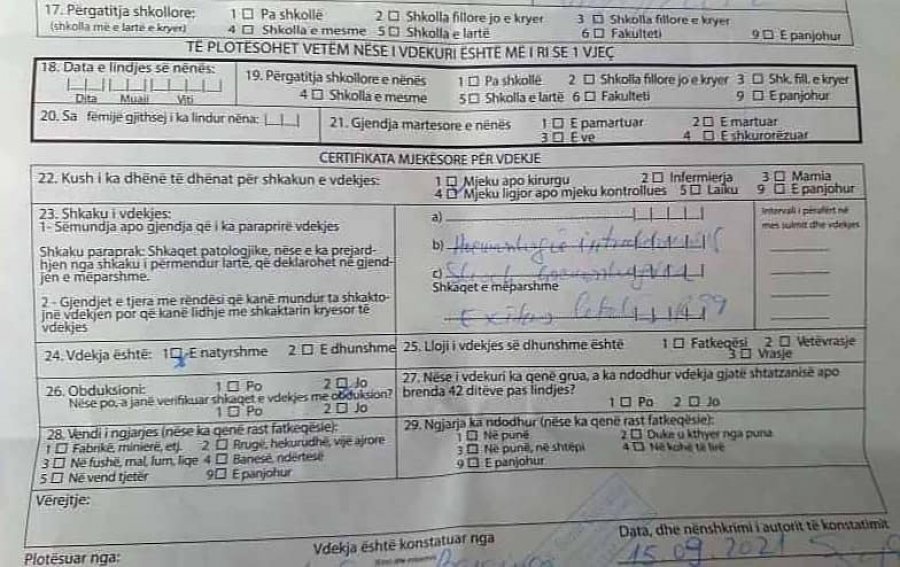 17. Përgatitja shkollore: 1 □ Pa shkollë 2 □ Shkolla fillore jo e kryer 3 □ Shkolla fillore e kryer
(shkolla më e lartë e kryer) 4 □ Shkolla e mesme 5 □ Shkolla e lartë 6 □ Fakulteti 9 □ E panjohur
TË PLOTËSOHET VETËM NËSE I VDEKURI ËSHTË MË I RI SE 1 VJEÇ
18. Data e lindjes së nënës: 19. Përgatitja shkollore e nënës 1 □ Pa shkollë 2 □ Shkolla fillore jo e kryer 3 □ Shk. fill. e kryer
Dita Muaji Viti 4 □ Shkolla e mesme 5 □ Shkolla e lartë 6 □ Fakulteti 9 □ E panjohur
20. Sa fëmijë gjithsej i ka lindur nëna: 21. Gjendja martesore e nënës 1 □ E pamartuar 2 □ E martuar
3 □ E ve 4 □ E shkurorëzuar
CERTIFIKATA MJEKËSORE PËR VDEKJE
22. Kush i ka dhënë të dhënat për shkakun e vdekjes: 1 □ Mjeku apo kirurgu 2 □ Infermierja 3 □ Mamia
4 □ Mjeku ligjor apo mjeku kontrollues 5 □ Laiku 9 □ E panjohur
23. Shkaku i vdekjes:
1- Sëmundja apo gjendja që i ka paraprirë vdekjes
Shkaku paraprak: Shkaqet patologjike, nëse e ka prejard-
hjen nga shkaku i përmendur lartë, që deklarohet në gjend-
jen e mëparshme.
2 - Gjendjet e tjera me rëndësi që kanë mundur ta shkakto-
jnë vdekjen por që kanë lidhje me shkaktarin kryesor të
vdekjes
a)
b)
c)
Shkaqet e mëparshme
Exitus letalis
Intervali i përafërt në
mes sulmit dhe vdekjes
24. Vdekja është: 1 □ E natyrshme 2 □ E dhunshme 25. Lloji i vdekjes së dhunshme është 1 □ Fatkeqësi 2 □ Vetëvrasje
3 □ Vrasje
26. Obduksioni: 1 □ Po 2 □ Jo
Nëse po, a janë verifikuar shkaqet e vdekjes me obduksion?
1 □ Po 2 □ Jo
27. Nëse i vdekuri ka qenë grua, a ka ndodhur vdekja gjatë shtatzanisë apo
brenda 42 ditëve pas lindjes?
1 □ Po 2 □ Jo
28. Vendi i ngjarjes (nëse ka qenë rast fatkeqësie):
1 □ Fabrikë, minierë, etj. 2 □ Rrugë, hekurudhë, vijë ajrore
3 □ Në fushë, mal, lum, liqe 4 □ Banesë, ndërtesë
5 □ Në vend tjetër 9 □ E panjohur
29. Ngjarja ka ndodhur (nëse ka qenë rast fatkeqësie):
1 □ Në punë 2 □ Duke u kthyer nga puna
3 □ Në punë, në shtëpi 4 □ Në kohë të lirë
9 □ E panjohur
Vërejtje:
Plotësuar nga: Vdekja është konstatuar nga Data, dhe nënshkrimi i autorit të konstatimit
15.09.2021